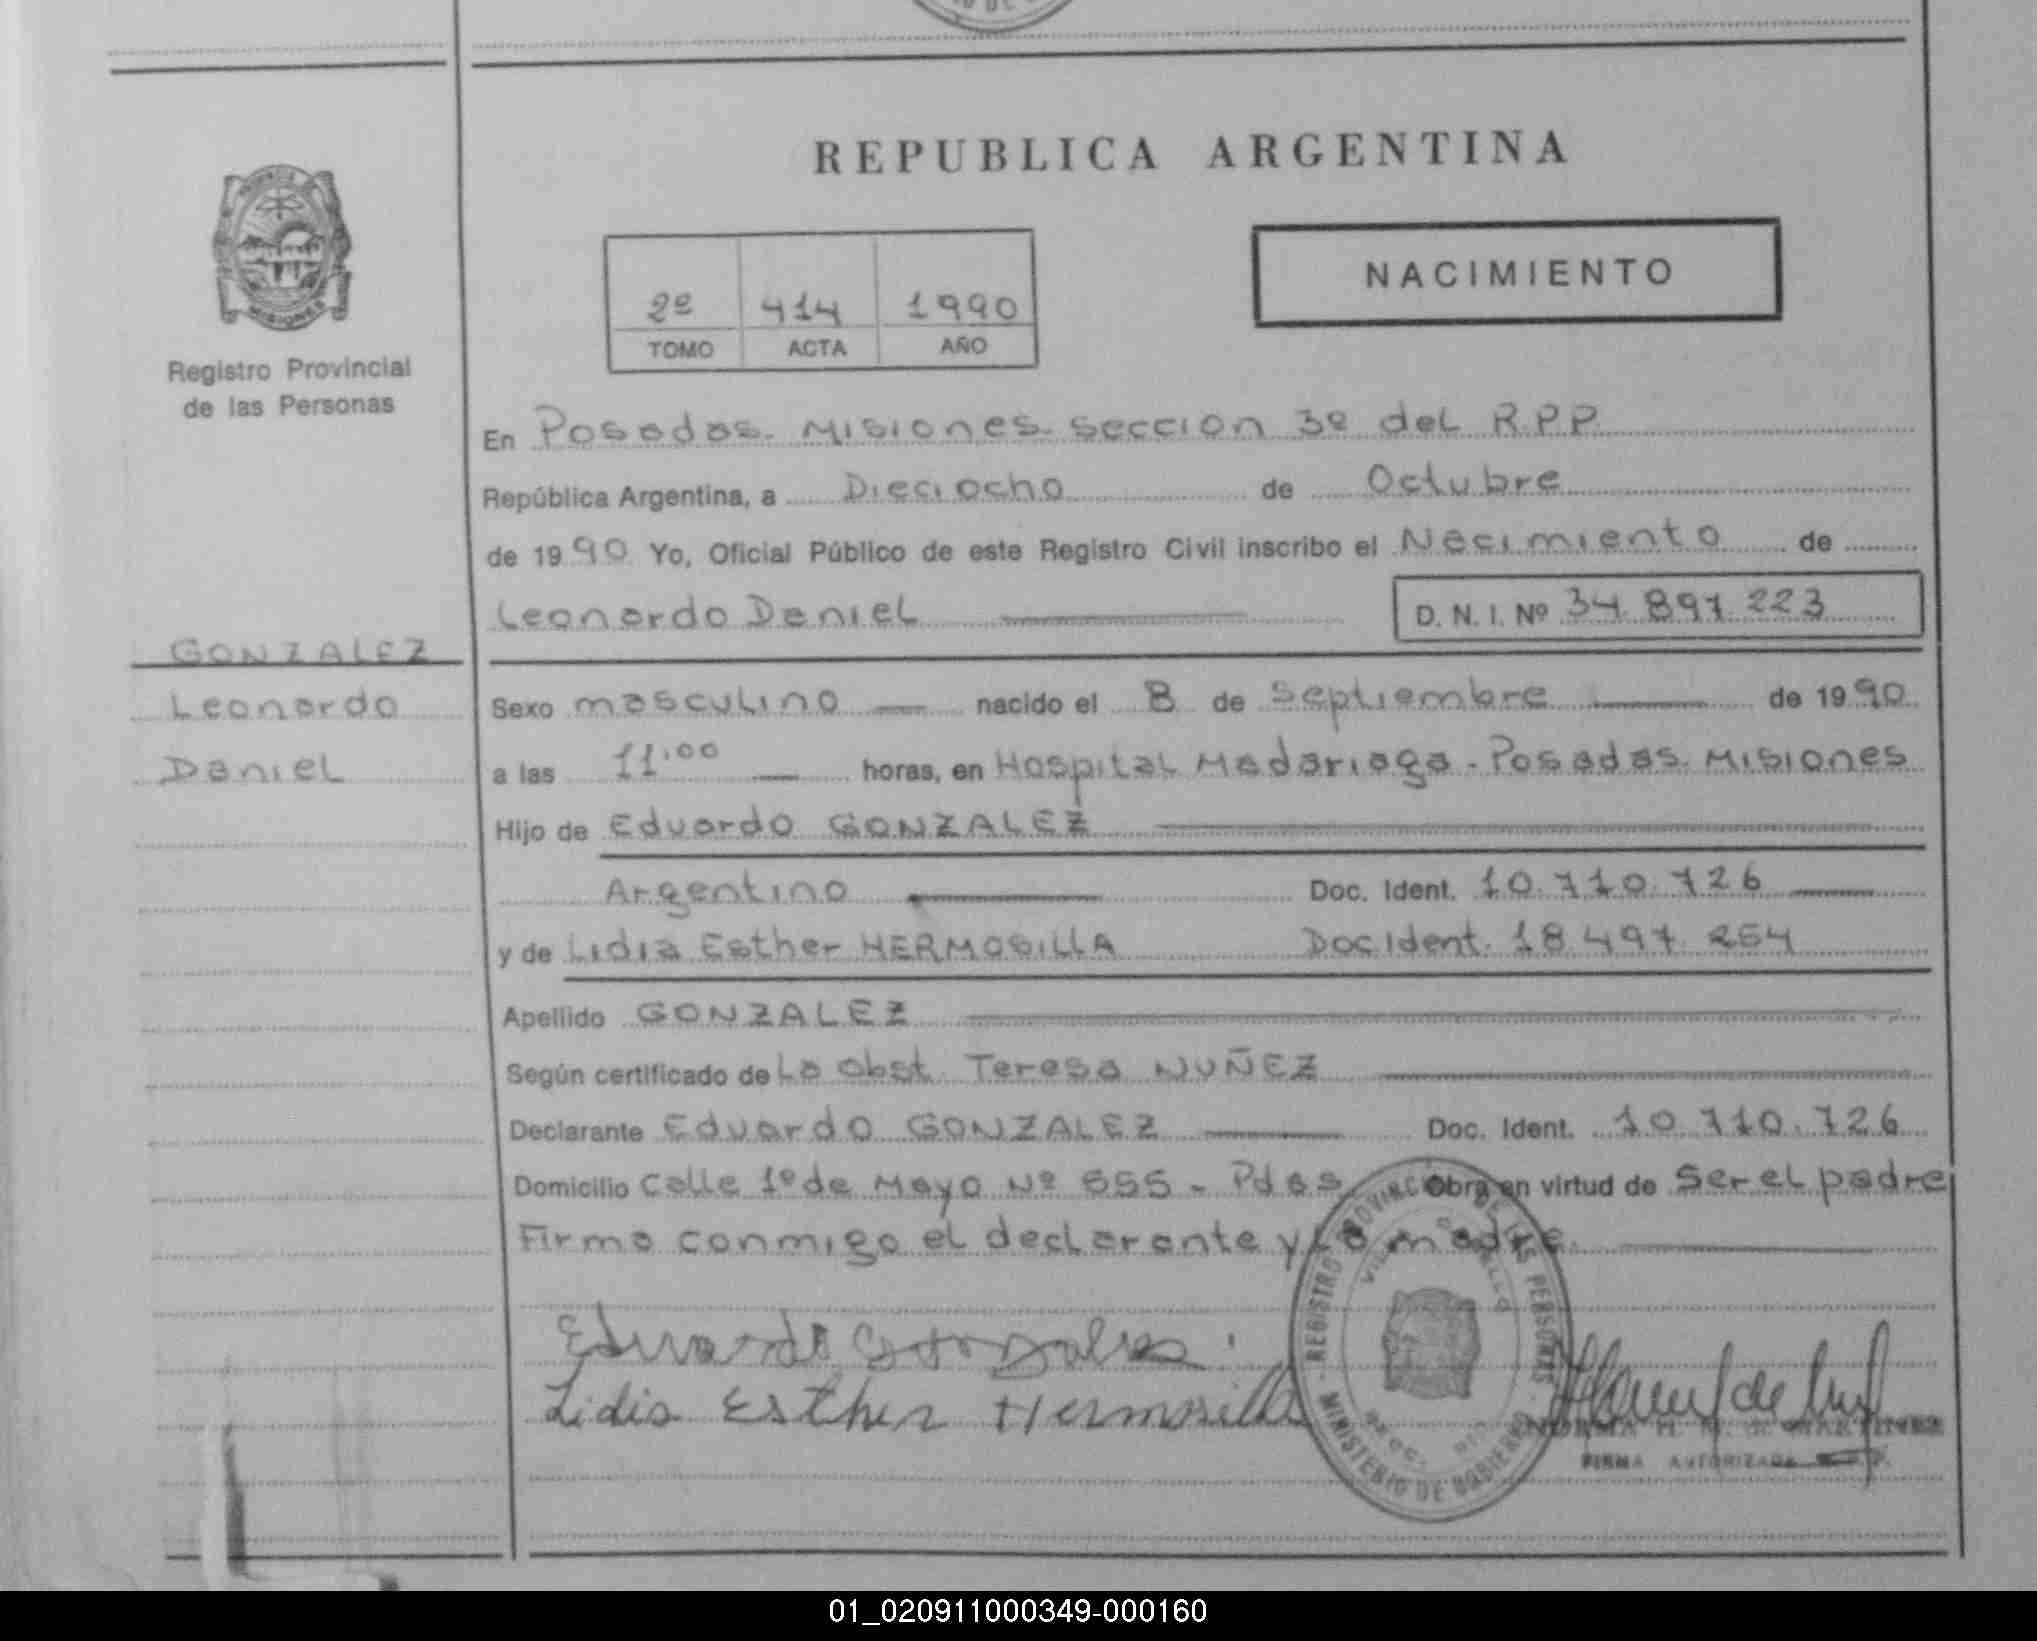 REPUBLICA ARGENTINA
MISIONES
Registro Provincial
de las Personas
NACIMIENTO
2º 414 1990
TOMO ACTA AÑO
En Posadas. Misiones. Seccion 3º del R.P.P.
República Argentina, a Dieciocho de Octubre
de 1990 Yo, Oficial Público de este Registro Civil inscribo el Nacimiento de
Leonardo Daniel D. N. I. Nº 34.897.223
GONZALEZ
Leonardo
Daniel
Sexo masculino nacido el 8 de Septiembre de 1990
a las 11.00 horas, en Hospital Madariaga - Posadas. Misiones
Hijo de Eduardo GONZALEZ
Argentino Doc. Ident. 10.710.726
y de Lidia Esther HERMOSILLA Doc Ident. 18.497.254
Apellido GONZALEZ
Según certificado de La Obst. Teresa NUÑEZ
Declarante Eduardo GONZALEZ Doc. Ident. 10.710.726
Domicilio Calle 1º de Mayo Nº 655 - Pdas Obra en virtud de Ser el padre
Firma conmigo el declarante y la madre.
Eduardo Gonzales
Lidia Esther Hermosilla
REGISTRO PROVINCIAL DE LAS PERSONAS
MINISTERIO DE GOBIERNO
NORMA H. M. MARTINEZ
FIRMA AUTORIZADA
01_020911000349-000160